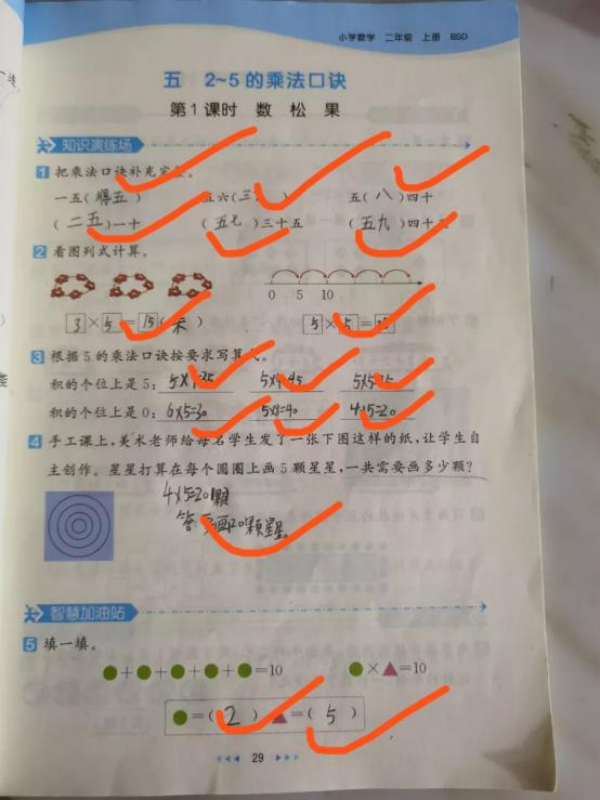 小学数学 二年级 上册 BSD
五 2~5的乘法口诀
第1课时 数 松 果
知识演练场
1 把乘法口诀补充完 。
一五( 得五 ) 五六(三 ) 五( 八 )四十
( 二五 )一十 ( 五七 )三十五 ( 五九 )四十
2 看图列式计算。
0 5 10
3×5=15( ) 5× =
3 根据5的乘法口诀按要求写算 。
积的个位上是5: 5×
积的个位上是0: 6×5=30 5×8=40 4×5=20
4 手工课上,美术老师给每名学生发了一张下图这样的纸,让学生自
主创作。星星打算在每个圆圈上画5颗星星,一共需要画多少颗?
4×5=20颗
答: 画20颗星星
智慧加油站
5 填一填。
●+●+●+●+●=10 ●×▲=10
●=( 2 ) ▲=( 5 )
29